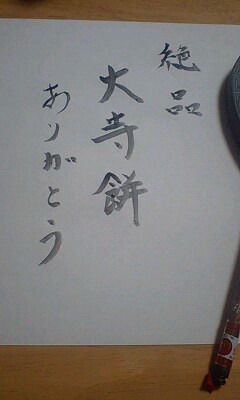 絶品
大寺餅
ありがとう